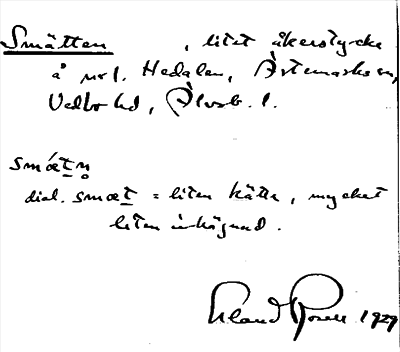 Smätten , litet åkerstycke
å nr 1. Hedalen, Ärtemarks sn,
Vedbo hd, Älvsb. l.
smǽtn̥
dial. smæt = liten kätte, mycket
liten inhägnad.
Erland Rosell 1929